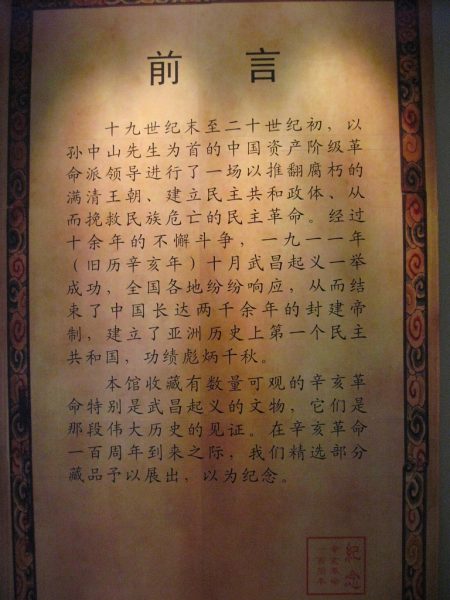 前 言
十九世纪末至二十世纪初，以
孙中山先生为首的中国资产阶级革
命派领导进行了一场以推翻腐朽的
满清王朝、建立民主共和政体、从
而挽救民族危亡的民主革命。经过
十余年的不懈斗争，一九一一年
（旧历辛亥年）十月武昌起义一举
成功，全国各地纷纷响应，从而结
束了中国长达两千余年的封建帝
制，建立了亚洲历史上第一个民主
共和国，功绩彪炳千秋。
本馆收藏有数量可观的辛亥革
命特别是武昌起义的文物，它们是
那段伟大历史的见证。在辛亥革命
一百周年到来之际，我们精选部分
藏品予以展出，以为纪念。
紀念
辛亥革命
一百周年